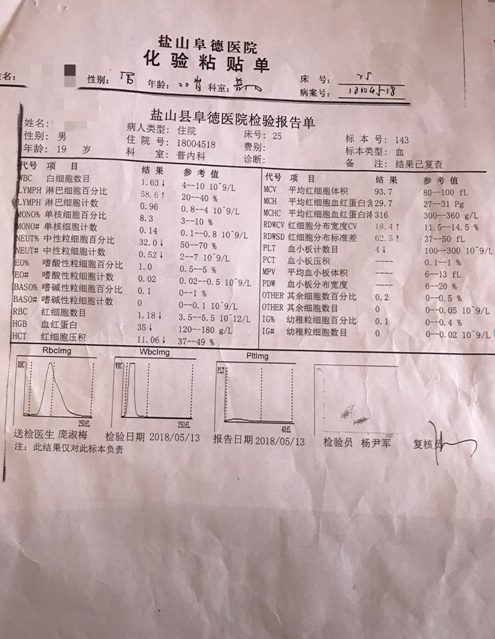 盐山阜德医院
化验粘贴单
姓名: 性别: 男 年龄: 20岁 科室: 床号: 25
病案号: 18004518
盐山县阜德医院检验报告单
姓名: 病人类型: 住院 床号: 25 标本号: 143
性别: 男 住院号: 18004518 费别: 标本类型: 血
年龄: 19 岁 科室: 普内科 诊断: 备注: 结果已复查
代号 项目 结果 参考值 代号 项目 结果 参考值
WBC 白细胞数目 1.63↓ 4--10 10^9/L MCV 平均红细胞体积 93.7 80--100 fL
LYMPH 淋巴细胞百分比 58.6↑ 20--40 % MCH 平均红细胞血红蛋白含 29.7 27--31 Pg
LYMPH 淋巴细胞计数 0.96 0.8--4 10^9/L MCHC 平均红细胞血红蛋白浓 316 300--360 g/L
MONO% 单核细胞百分比 8.3 3--10 % RDWCV 红细胞分布宽度CV 18.4↑ 11.5--14.5 %
MONO# 单核细胞计数 0.14 0.1--0.8 10^9/L RDWSD 红细胞分布标准差 62.5↑ 37--50 fL
NEUT% 中性粒细胞百分比 32.0↓ 50--70 % PLT 血小板计数目 4↓ 100--300 10^9/L
NEUT# 中性粒细胞计数 0.52↓ 2--7 10^9/L PCT 血小板压积 ---- 0.1--1 %
EO% 嗜酸性粒细胞百分比 1.0 0.5--5 % MPV 平均血小板体积 ---- 6--13 fL
EO# 嗜酸性粒细胞计数 0.02 0.02--0.5 10^9/L PDW 血小板分布宽度 ---- 6--20 %
BASO% 嗜碱性粒细胞百分比 0.1 0--1 % OTHER 其余细胞数百分比 0.2 0--0.5 %
BASO# 嗜碱性粒细胞计数 0 0--0.1 10^9/L OTHER 其余细胞数目 0 0--0.05 10^9/L
RBC 红细胞数目 1.18↓ 3.5--5.5 10^12/L IG% 幼稚粒细胞百分比 0.1 0--0.4 %
HGB 血红蛋白 35↓ 120--180 g/L IG# 幼稚粒细胞数目 0 0--0.02 10^9/L
HCT 红细胞压积 11.06↓ 37--49 %
RbcImg WbcImg PltImg
RBC 250fL WBC 250fL PLT 40fL
送检医生 庞淑梅 检验日期 2018/05/13 报告日期 2018/05/13 检验员 杨尹军 复核员
注: 此结果仅对此标本负责